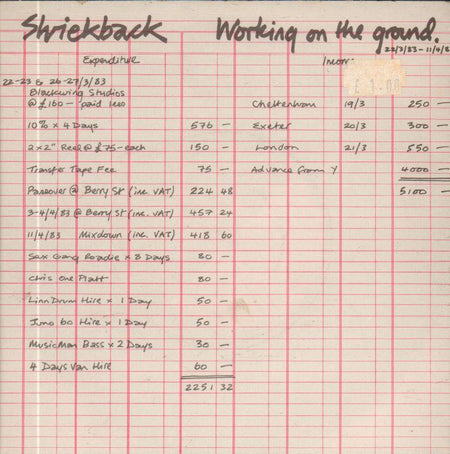 Shriekback Working on the ground.
22/3/83 - 11/4/8
Expenditure Incom
£1.00
22-23 & 26-27/3/83
Blackwing Studios
@ £160 - paid less
Cheltenham 19/3 250 -
10% x 4 Days 576 - Exeter 20/3 300 -
2 x 2" Reel @ £75 - each 150 - London 21/3 550 -
Transfer Tape Fee 75 - Advance from Y 4000 -
Panover @ Berry St (inc. VAT) 224 48 5100 -
3-4/4/83 @ Berry St (inc. VAT) 457 24
11/4/83 Mixdown (inc. VAT) 418 60
Sax Gang Roadie x 8 Days 80 -
Chris One Platt 80 -
LinnDrum Hire x 1 Day 50 -
Juno 60 Hire x 1 Day 50 -
MusicMan Bass x 2 Days 30 -
4 Days Van Hire 60 -
2251 32